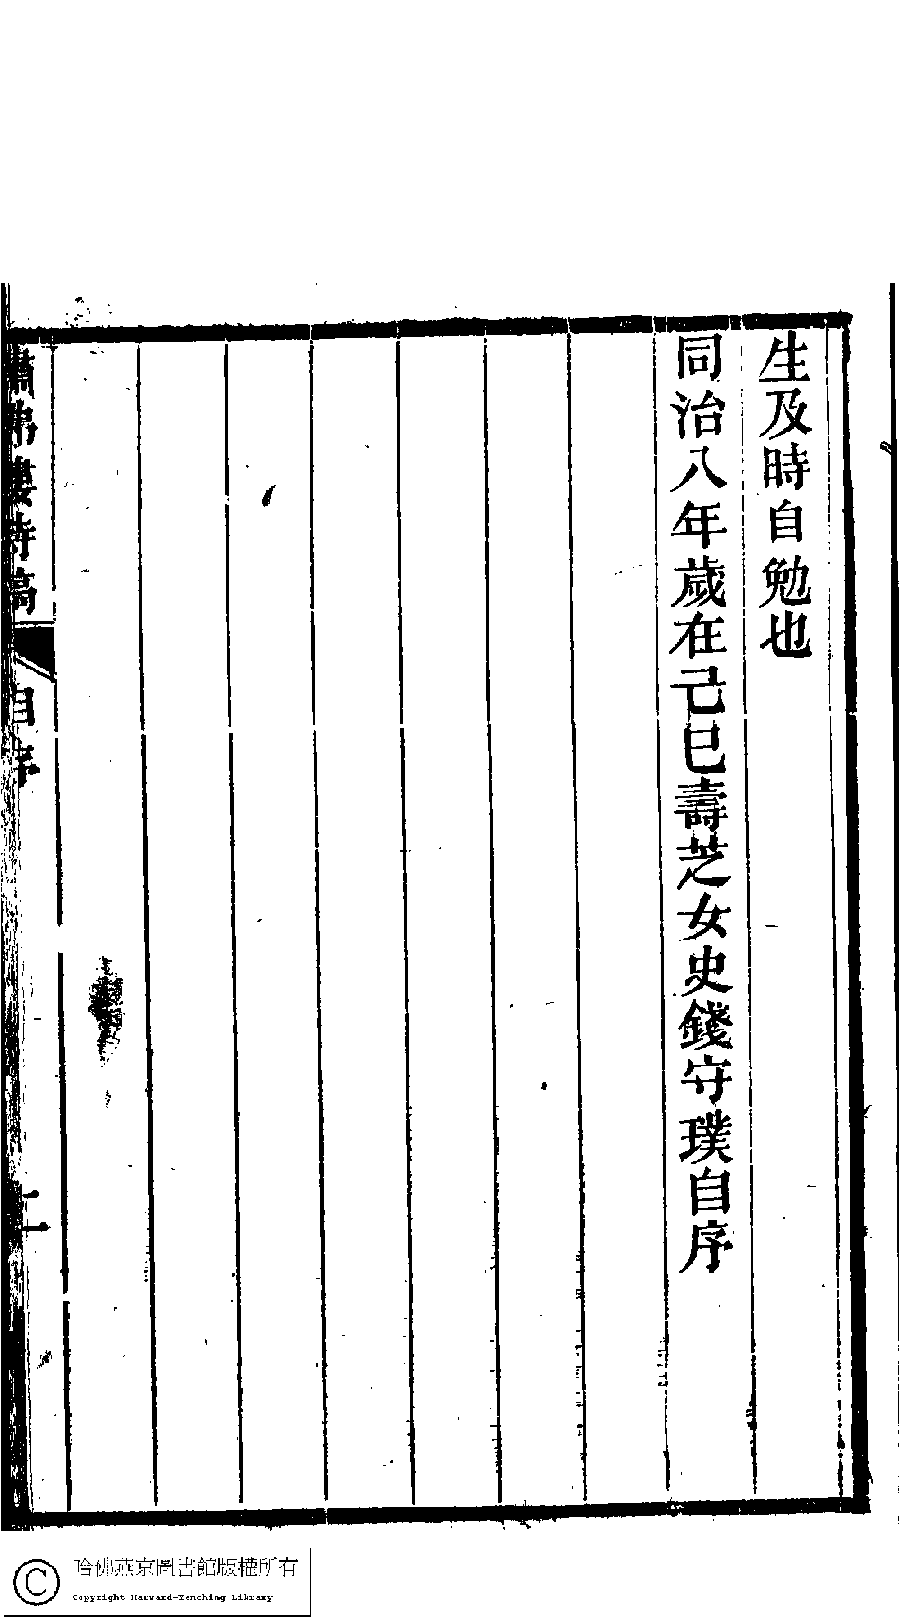 生及時自勉也
同治八年歲在己巳壽芝女史錢守璞自序
繡佛樓詩稿
自序
二
哈佛燕京圖書館版權所有
Copyright Harvard-Yenching Library